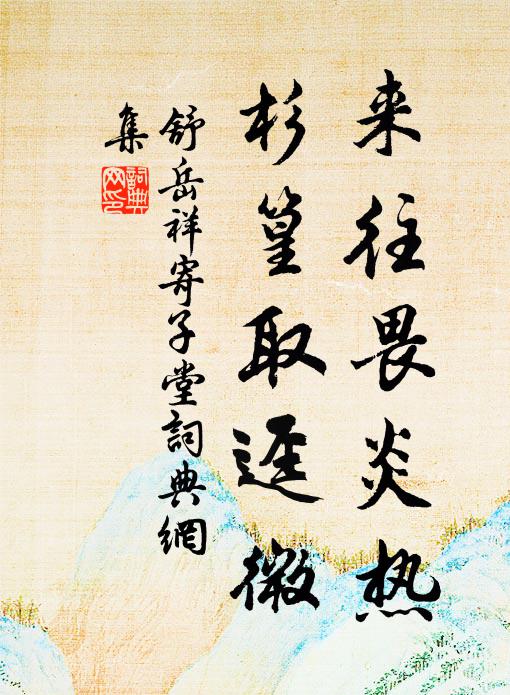 来往畏炎热
杉篁取逕微
舒岳祥寄子堂詞典網
集
詞典
网印